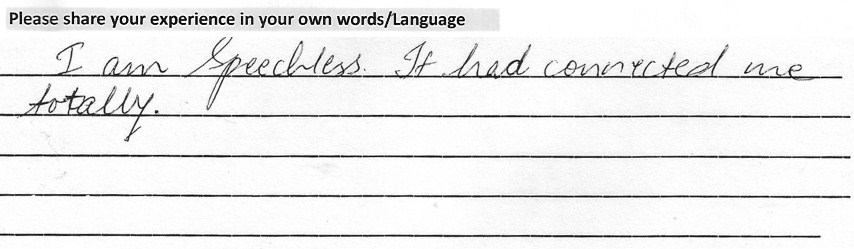 Please share your experience in your own words/Language
I am Speechless. It had connected me
totally.